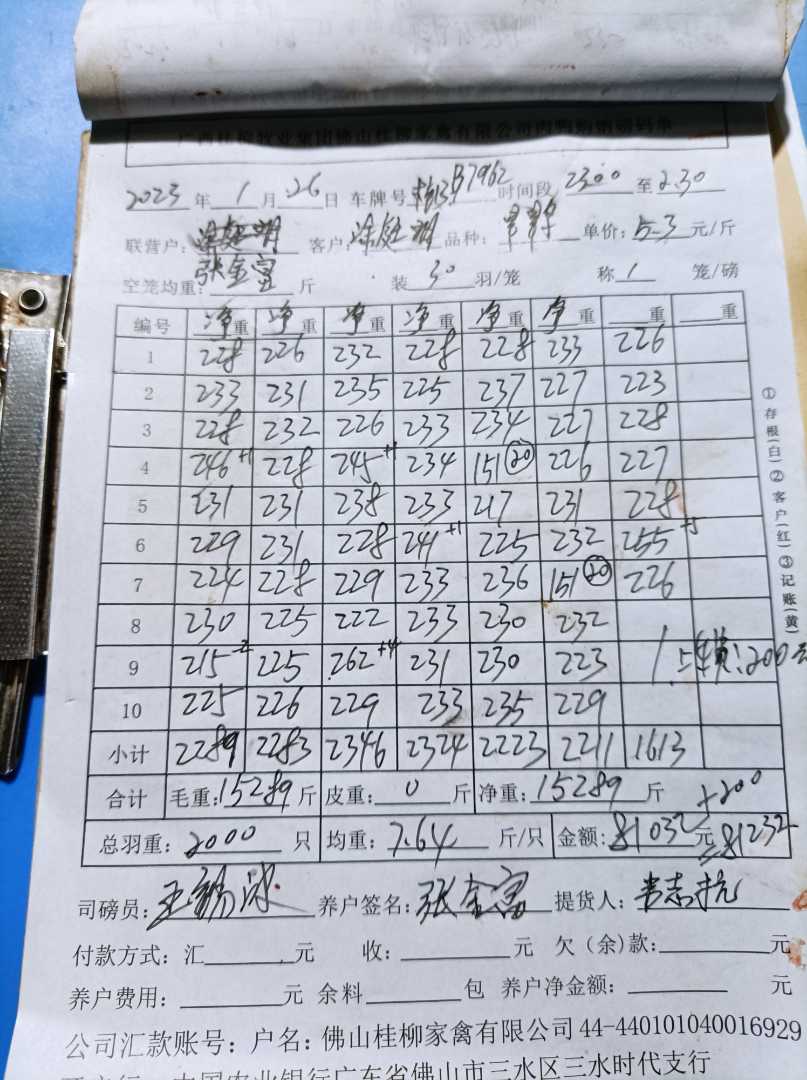 广西桂柳牧业集团佛山桂柳家禽有限公司肉鸭购销磅码单
2023年1月26日 车牌号 B7962 时间段 2300至2.30
联营户: 客户:涂廷明 品种: 单价:5.3元/斤
张金富
空笼均重: 斤 装30羽/笼 称1笼/磅
编号 净重 净重 净重 净重 净重 净重 重 重
1 228 226 232 228 228 233 226
2 233 231 235 225 237 227 223
3 228 232 226 233 234 227 228
4 246+1 228 245+1 234 151⑳ 226 227
5 231 231 238 233 217 231 228
6 229 231 228 241+1 225 232 255+5
7 224 228 229 233 236 151⑳ 226
8 230 225 222 233 230 232
9 215-2 225 262+4 231 230 223 200元
10 225 226 229 233 235 229
小计 2289 2283 2346 2324 2223 2211 1613
合计 毛重:15289斤 皮重:0斤 净重:15289斤
+200
总羽重:2000只 均重:7.64斤/只 金额:81032元=81232
司磅员:王锡冰 养户签名:张金富 提货人:韦志抗
付款方式:汇 元 收: 元 欠(余)款: 元
养户费用: 元 余料 包 养户净金额: 元
公司汇款账号:户名:佛山桂柳家禽有限公司 44-440101040016929
开户行:中国农业银行广东省佛山市三水区三水时代支行
①存根(白)②客户(红)③记账(黄)